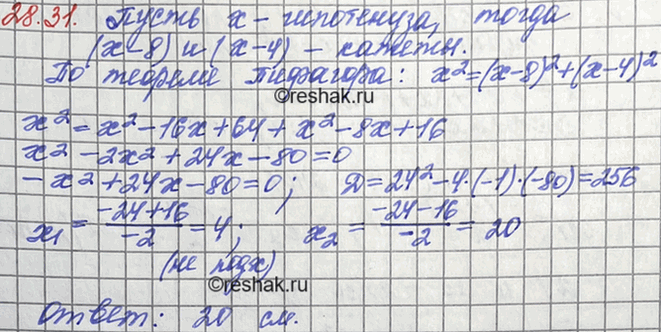 28.31. Пусть x - гипотенуза, тогда
(x-8) и (x-4) - катеты.
По теореме Пифагора: x²=(x-8)²+(x-4)²
©reshak.ru
x²=x²-16x+64+x²-8x+16
x²-2x²+24x-80=0
-x²+24x-80=0; Д=24²-4·(-1)·(-80)=256
x₁=(-24+16)/-2=4; x₂=(-24-16)/-2=20
(не подх)
©reshak.ru
Ответ: 20 см.